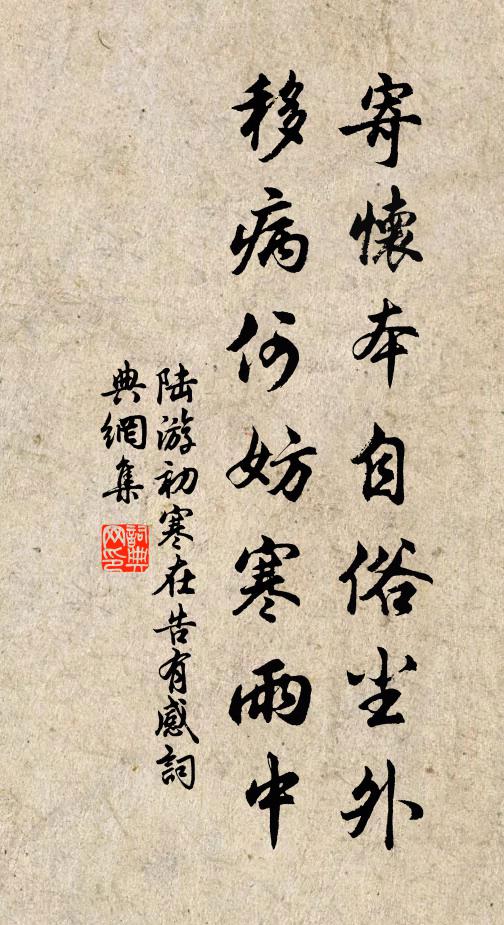 寄懷本自俗尘外
移病何妨寒雨中
陆游初寒在告有感詞
典網集
詞典网印